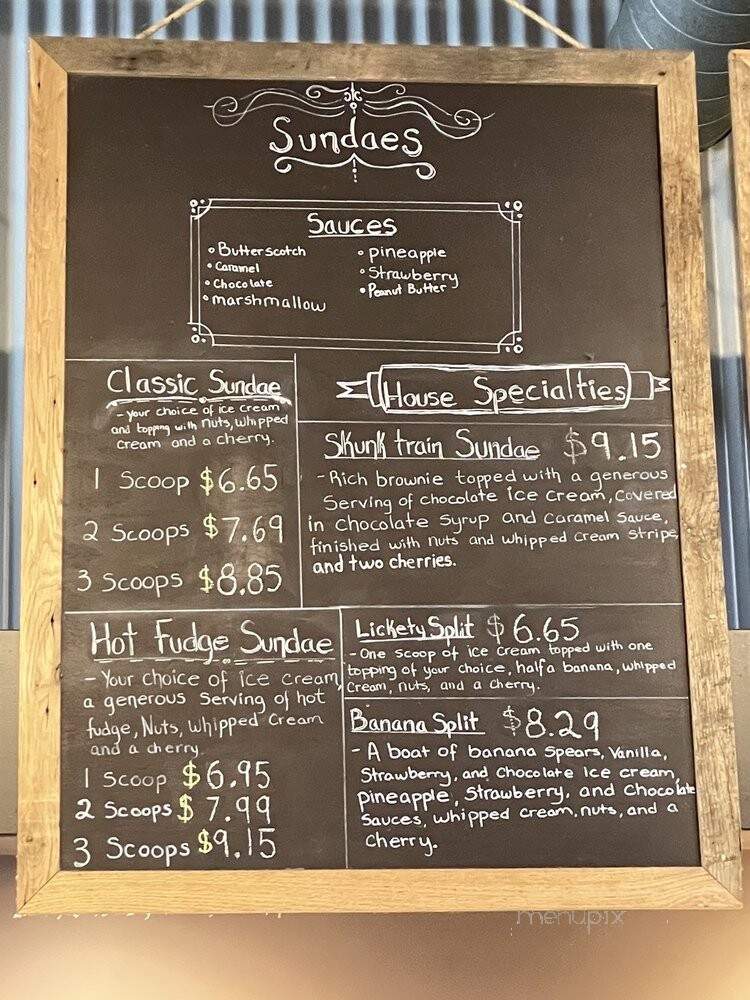 Sundaes
Sauces
• Butterscotch
• Caramel
• Chocolate
• marshmallow
• pineapple
• Strawberry
• Peanut Butter
Classic Sundae
- your choice of ice cream
and topping with nuts, whipped
cream and a cherry.
1 Scoop $6.65
2 Scoops $7.69
3 Scoops $8.85
Hot Fudge Sundae
- Your choice of ice cream,
a generous serving of hot
fudge, Nuts, whipped cream
and a cherry
1 Scoop $6.95
2 Scoops $7.99
3 Scoops $9.15
House Specialties
Skunk train Sundae $9.15
- Rich brownie topped with a generous
Serving of chocolate ice cream, covered
in chocolate syrup and caramel sauce,
finished with nuts and whipped cream stripe,
and two cherries.
Lickety Split $6.65
- One scoop of ice cream topped with one
topping of your choice, half a banana, whipped
cream, nuts, and a cherry.
Banana Split $8.29
- A boat of banana spears, Vanilla,
Strawberry, and Chocolate Ice cream,
pineapple, Strawberry, and Chocolate
Sauces, whipped cream, nuts, and a
cherry.
menupix